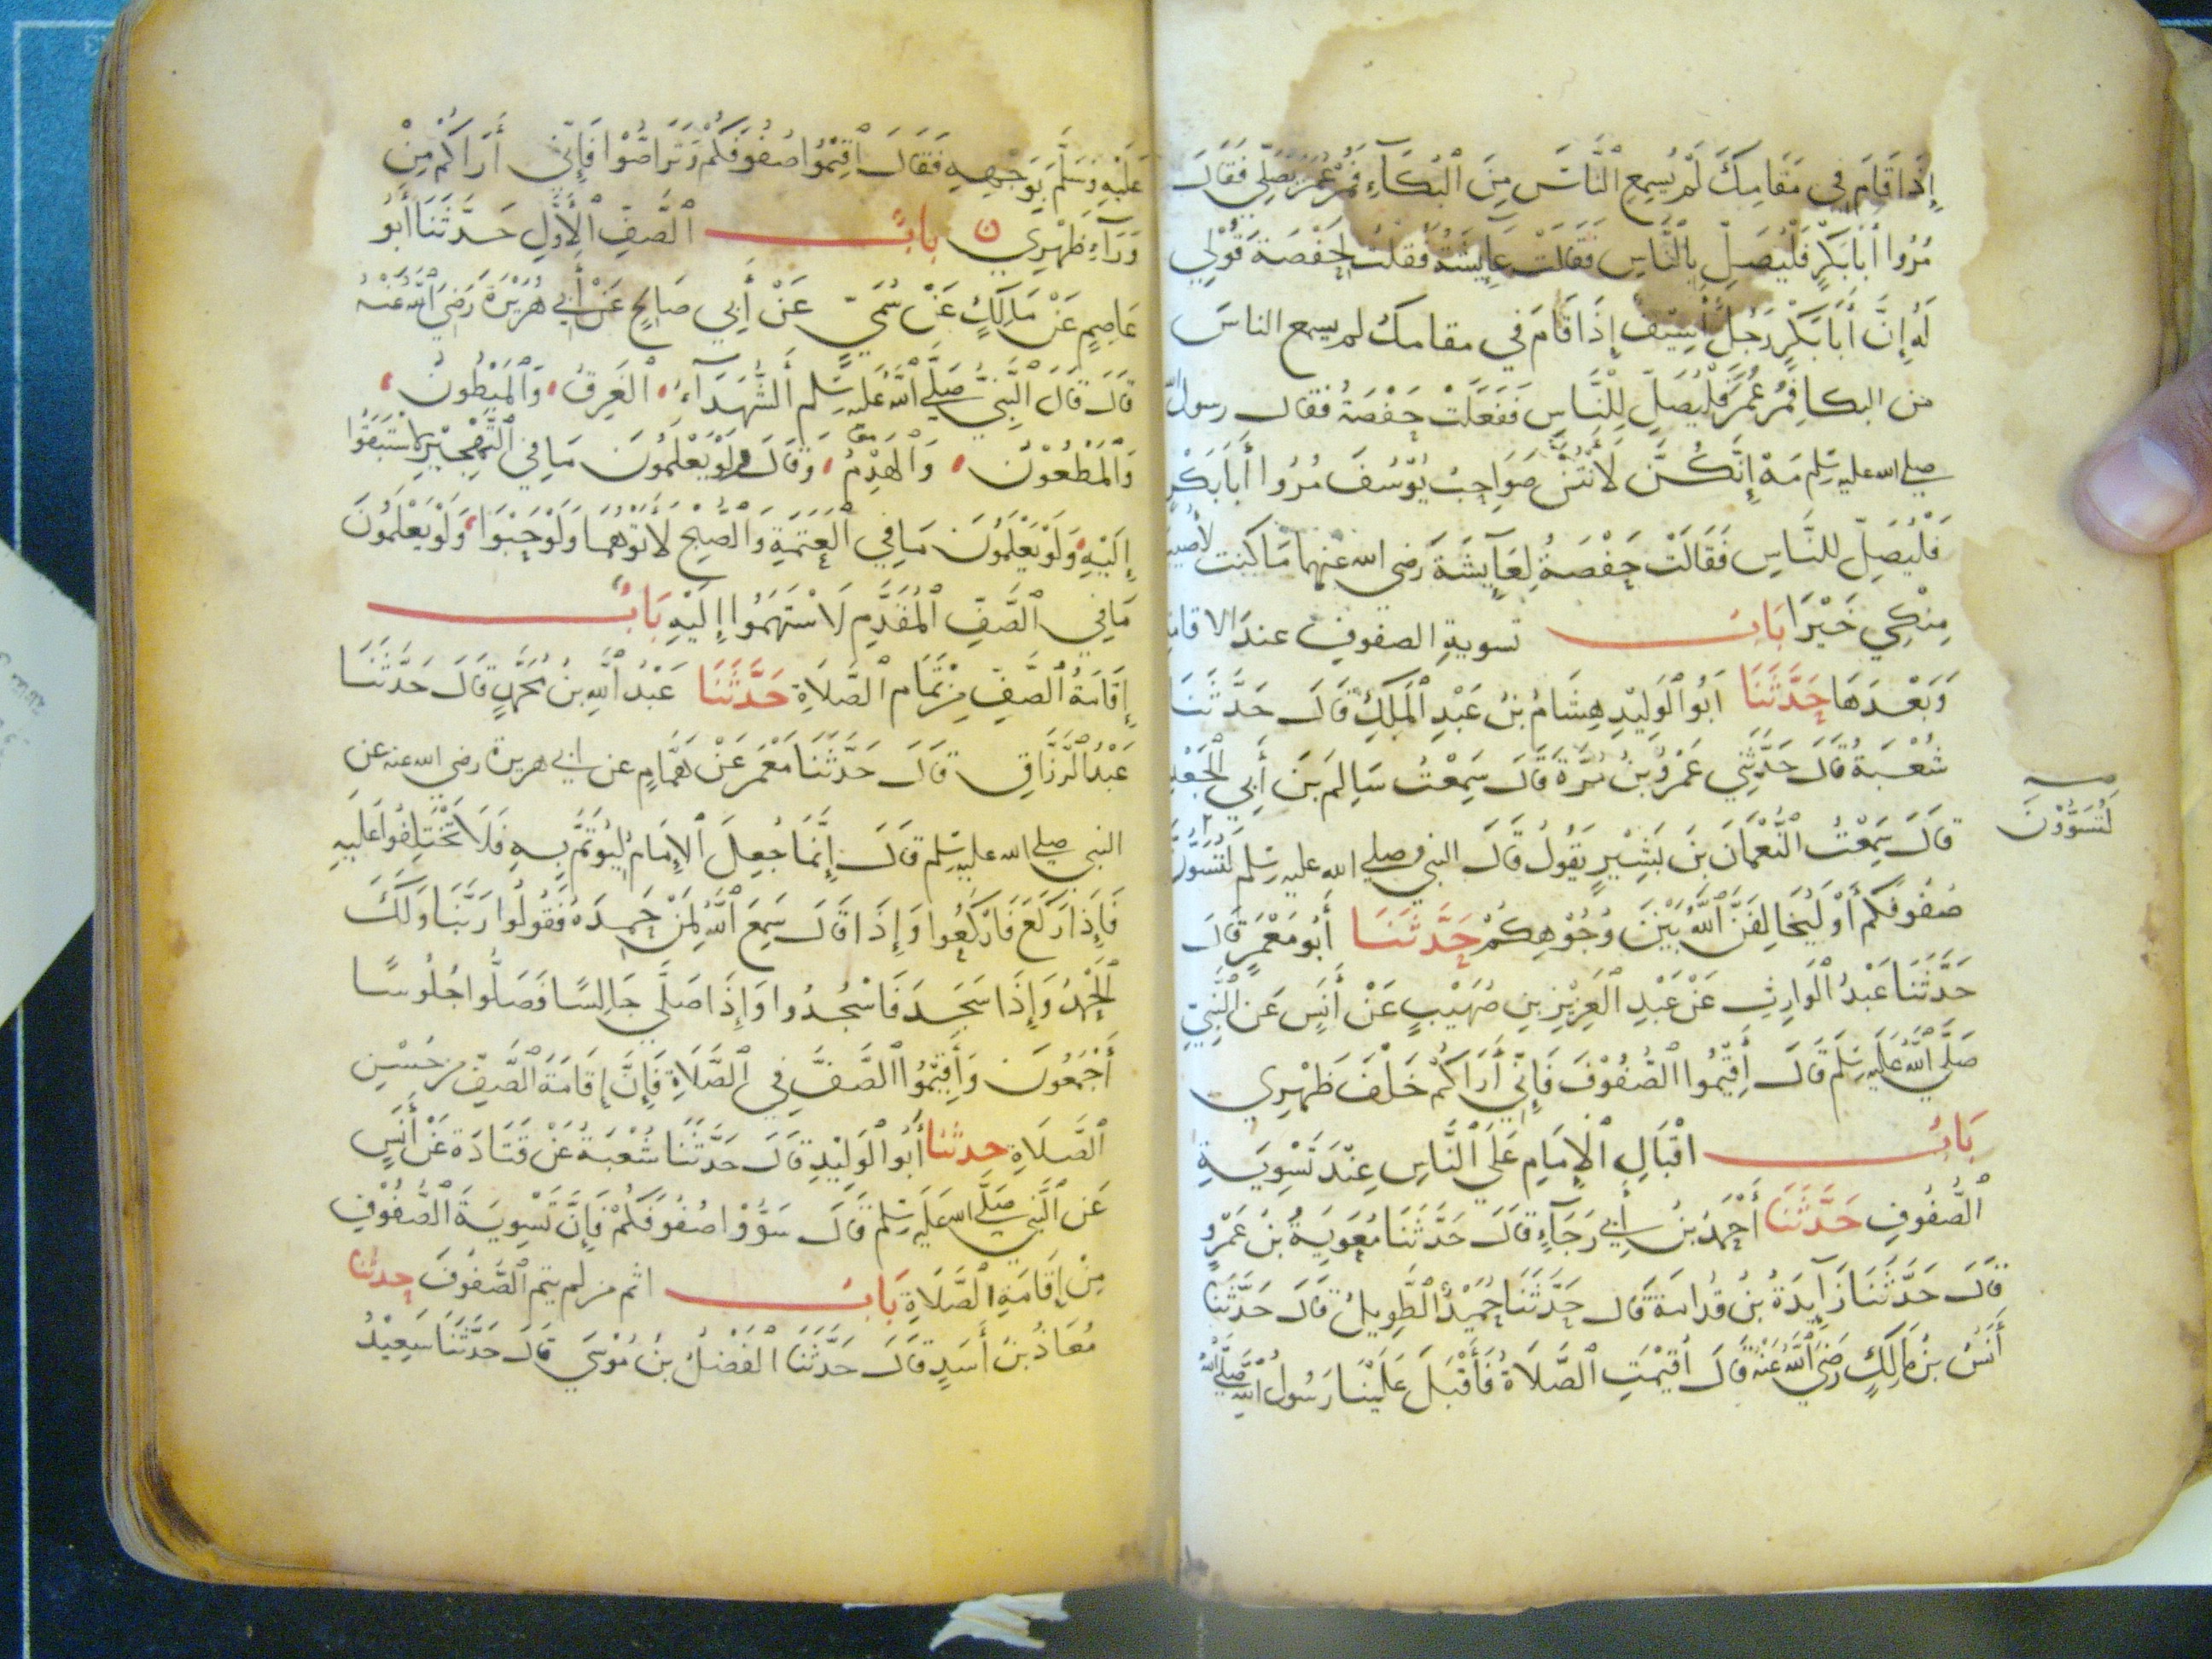 إِذَا قَامَ فِي مَقَامِكَ لَمْ يُسْمِعِ النَّاسَ مِنَ الْبُكَاءِ فَمُرْ عُمَرَ يُصَلِّي فَقَالَ
مُرُوا أَبَا بَكْرٍ فَلْيُصَلِّ بِالنَّاسِ فَقَالَتْ عَايِشَةُ فَقُلْتُ لِحَفْصَةَ قُولِي
لَهُ إِنَّ أَبَا بَكْرٍ رَجُلٌ أَسِيْفٌ إِذَا قَامَ فِي مقامك لم يسمع الناسَ
من البكا فَمُرْ عُمَرَ فَلْيُصَلِّ لِلنَّاسِ فَفَعَلَتْ حَفْصَةُ فقال رسول الله
صلى الله عليه وسلم مَهْ إِنَّكُنَّ لَأَنْتُنَّ صَوَاحِبُ يُوسُفَ مُرُوا أَبَا بَكْرٍ
فَلْيُصَلِّ للنَّاسِ فَقَالَتْ حَفْصَةُ لِعَايِشَةَ رَضي الله عنهما مَا كُنْت لأصيب
مِنْكِي خَيْرًا بَابُ تسويةِ الصفوفِ عندَ الاقامة
وَبَعْدَهَا حَدَّثَنَا أَبُو الْوَلِيْدِ هِشَامُ بْنُ عَبْدِ الْمَلِكِ قَالَ حَدَّثَنَا
شُعْبَةُ قَالَ حَدَّثَنِي عَمْرُو بْنُ مُرَّةَ قَالَ سَمِعْتُ سَالِمَ بْنَ أَبِي الْجَعْدِ
قَالَ سَمِعْتُ النُّعْمَانَ بْنَ بَشِيْرٍ يَقُولُ قَالَ النبي صلى الله عليه وسلم لَتُسَوُّنَّ
لَتُسَوُّونَ
صُفُوفَكُمْ أَوْ لَيُخَالِفَنَّ اللَّهُ بَيْنَ وُجُوْهِكُمْ حَدَّثَنَا أَبُو مَعْمَرٍ قَالَ
حَدَّثَنَا عَبْدُ الْوَارِثِ عَنْ عَبْدِ الْعَزِيْزِ بْنِ صُهَيْبٍ عَنْ أَنَسٍ عَنِ النَّبِيِّ
صَلَّى اللَّهُ عَلَيْهِ وَسَلَّمَ قَالَ أَقِيْمُوا الصُّفُوْفَ فَإِنِّي أَرَاكُمْ خَلْفَ ظَهْرِي
بَابُ اقْبَالِ الْإِمَامِ عَلَى النَّاسِ عِنْدَ تَسْوِيَةِ
الصُّفُوفِ حَدَّثَنَا أَحْمَدُ بْنُ أَبِي رَجَاءٍ قَالَ حَدَّثَنَا مُعَوِيَةُ بْنُ عَمْرٍو
قَالَ حَدَّثَنَا زَايِدَةُ بْنُ قُدَامَةَ قَالَ حَدَّثَنَا حُمَيْدٌ الطَّوِيلُ قَالَ حَدَّثَنَا
أَنَسُ بْنُ مَالِكٍ رَضِيَ اللَّهُ عَنْهُ قَالَ أُقِيْمَتِ الصَّلَاةُ فَأَقْبَلَ عَلَيْنَا رَسُولُ اللَّهِ صَلَّى اللَّهُ
عَلَيْهِ وَسَلَّمَ بِوَجْهِهِ فَقَالَ أَقِيْمُوا صُفُوفَكُمْ وَتَرَاصُّوْا فَإِنِّي أَرَاكُمْ مِنْ
وَرَآءِ ظَهْرِي ن بابُ الصَّفِّ الْأَوَّلِ حَدَّثَنَا أَبُو
عَاصِمٍ عَنْ مَالِكٍ عَنْ سُمَيٍّ عَنْ أَبِي صَالِحٍ عَنْ أَبِي هُرَيْرَةَ رَضِيَ اللَّهُ عَنْهُ
قَالَ قَالَ النَّبِيُّ صَلَّى اللَّهُ عَلَيْهِ وَسَلَّم الشُّهَدَآءُ الْغَرِقُ وَالْمَبْطُونُ
وَالْمَطْعُوْنُ وَالْهَدِمُ وَقَالَ وَلَوْ يَعْلَمُونَ مَا فِي التَّهْجِيْرِ لَاسْتَبَقُوا
إِلَيْهِ وَلَوْ يَعْلَمُونَ مَا فِي الْعَتَمَةِ وَالصُّبْحِ لَأَتَوْهُمَا وَلَوْ حَبْوًا وَلَوْ يَعْلَمُونَ
مَا فِي الصَّفِّ الْمُقَدَّمِ لَاسْتَهَمُوا إِلَيْهِ بَابُ
إِقَامَةُ الصَّفِّ مِنْ تَمَامِ الصَّلَاةِ حَدَّثَنَا عَبْدُ اللَّهِ بْنُ مُحَمَّدٍ قَالَ حَدَّثَنَا
عَبْدُ الرَّزَّاقِ قَالَ حَدَّثَنَا مَعْمَرٌ عَنْ هَمَّامٍ عن ابي هريرة رضي الله عنه عن
النبي صلى الله عليه وسلم قَالَ إِنَّمَا جُعِلَ الْإِمَامُ لِيُؤْتَمَّ بِهِ فَلَا تَخْتَلِفُوا عَلَيْهِ
فَإِذَا رَكَعَ فَارْكَعُوا وَإِذَا قَالَ سَمِعَ اللَّهُ لِمَنْ حَمِدَهُ فَقُولُوا رَبَّنَا وَلَكَ
الْحَمْدُ وَإِذَا سَجَدَ فَاسْجُدُوا وَإِذَا صَلَّى جَالِسًا فَصَلُّوا جُلُوسًا
أَجْمَعُونَ وَأَقِيْمُوا الصَّفَّ فِي الصَّلَاةِ فَإِنَّ إِقَامَةَ الصَّفِّ مِنْ حُسْنِ
الصَّلَاةِ حدثنا أَبُو الْوَلِيْدِ قَالَ حَدَّثَنَا شُعْبَةُ عَنْ قَتَادَةَ عَنْ أَنَسٍ
عَنِ النَّبِيِّ صَلَّى الله عَلَيْهِ وَسَلَّم قَالَ سَوُّوْا صُفُوفَكُمْ فَإِنَّ تَسْوِيَةَ الصُّفُوْفِ
مِنْ إِقَامَةِ الصَّلَاةِ بَابُ اثم من لم يتم الصُّفُوفَ حدثنا
مُعَاذُ بْنُ أَسَدٍ قَالَ حَدَّثَنَا الْفَضْلُ بْنُ مُوْسَى قَالَ حَدَّثَنَا سَعِيْدُ